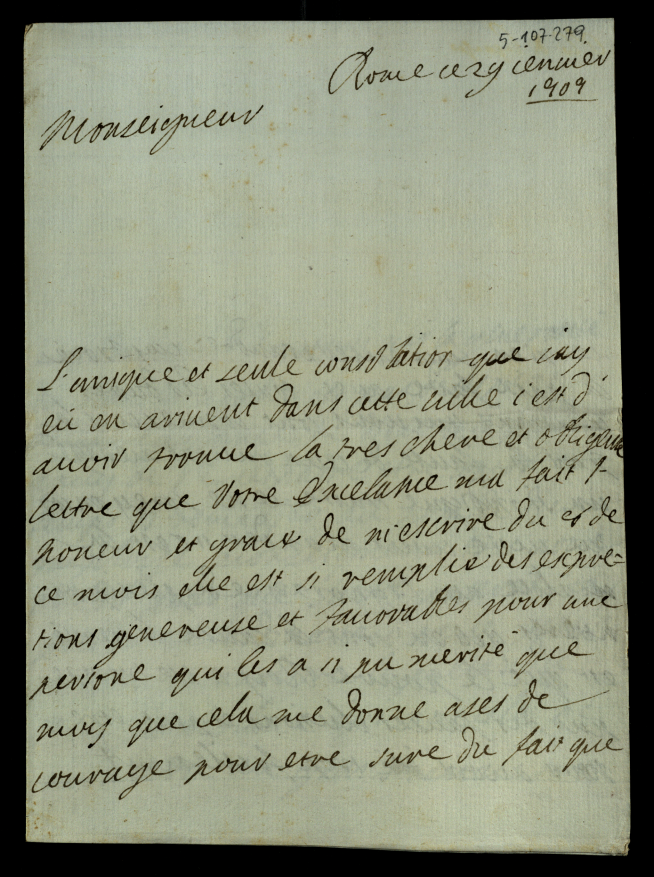 5-107-279
Rome ce 29 ienuier
1709
Monseigneur
L'unique et seule consolation que iay
eü en arivent dans cette ville c'est d'
auvir trouue la tres chere et obligente
lettre que Votre Excelance ma fait l-
honeur et grace de m'escrire du de
ce mois elle est si remplie des expre-
tions genereuse et fauorables pour une
persone qui les a si pu merité que
moy que cela me donne ases de
courage pour etre sure du fair que